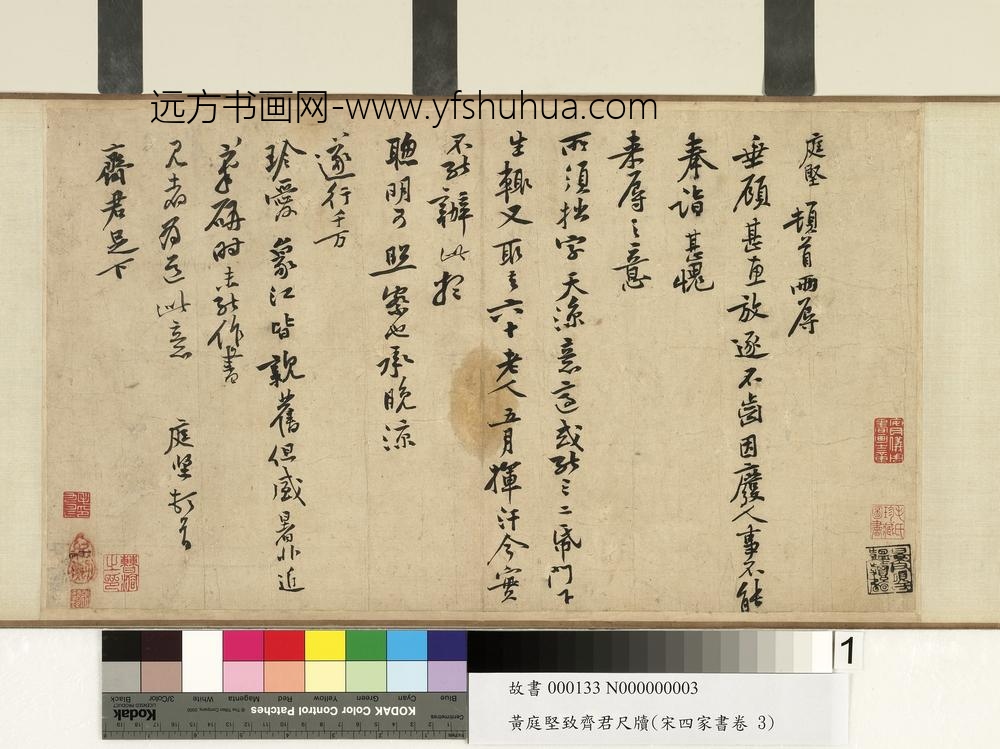 远方书画网-www.yfshuhua.com
庭堅頓首兩辱
垂顧甚惠放逐不齒因廢人事不能
奉詣甚愧
来辱之意
所須拙字天凉意適或能三二紙門下
生輒又取去六十老人五月揮汗今實
不能辦此想
聰明可照察也承晚凉
遂行千万
珍愛象江皆親舊但盛暑非近
筆硯時未能作書
見者為道此意
庭堅頓首
齊君足下
1
故書 000133 N000000003
黃庭堅致齊君尺牘(宋四家書卷 3)
Blue
Cyan
Green
Yellow
Red
Magenta
White
3/Color
Black
KODAK Color Control Patches
Kodak
© The Tiffen Company, 2000
LICENSED PRODUCT
Centimetres
Inches